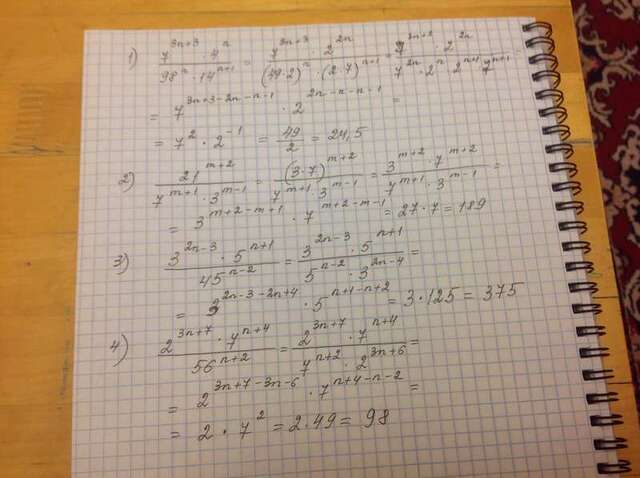 1) \frac{7^{3n+3} \cdot 4^{n}}{98^{n} \cdot 14^{n+1}} = \frac{7^{3n+3} \cdot 2^{2n}}{(49 \cdot 2)^{n} \cdot (2 \cdot 7)^{n+1}} = \frac{7^{3n+3} \cdot 2^{2n}}{7^{2n} \cdot 2^{n} \cdot 2^{n+1} \cdot 7^{n+1}} =
= 7^{3n+3-2n-n-1} \cdot 2^{2n-n-n-1} =
= 7^{2} \cdot 2^{-1} = \frac{49}{2} = 24,5
2) \frac{21^{m+2}}{7^{m+1} \cdot 3^{m-1}} = \frac{(3 \cdot 7)^{m+2}}{7^{m+1} \cdot 3^{m-1}} = \frac{3^{m+2} \cdot 7^{m+2}}{7^{m+1} \cdot 3^{m-1}} =
= 3^{m+2-m+1} \cdot 7^{m+2-m-1} = 27 \cdot 7 = 189
3) \frac{3^{2n-3} \cdot 5^{n+1}}{45^{n-2}} = \frac{3^{2n-3} \cdot 5^{n+1}}{5^{n-2} \cdot 3^{2n-4}} =
= 3^{2n-3-2n+4} \cdot 5^{n+1-n+2} = 3 \cdot 125 = 375
4) \frac{2^{3n+7} \cdot 7^{n+4}}{56^{n+2}} = \frac{2^{3n+7} \cdot 7^{n+4}}{7^{n+2} \cdot 2^{3n+6}} =
= 2^{3n+7-3n-6} \cdot 7^{n+4-n-2} =
= 2 \cdot 7^{2} = 2 \cdot 49 = 98